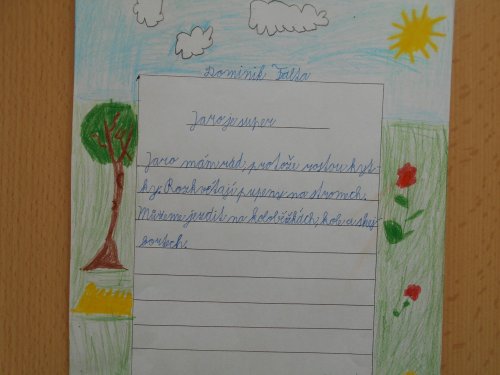 Dominik Falta
Jaro je super
Jaro mám rád, protože rostou kyt-
ky. Rozkvétají pupeny na stromech.
Můžeme jezdit na koloběžkách, kole a skej-
bortech.